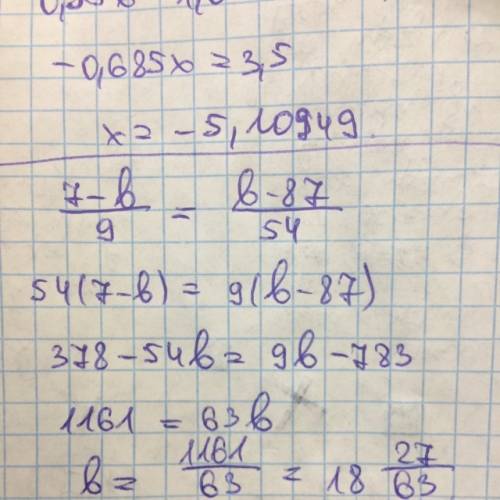 -0,685x = 3,5
x = -5,10949
7-в/9 = в-87/54
54(7-в) = 9(в-87)
378-54в = 9в-783
1161 = 63в
в = 1161/63 = 18 27/63